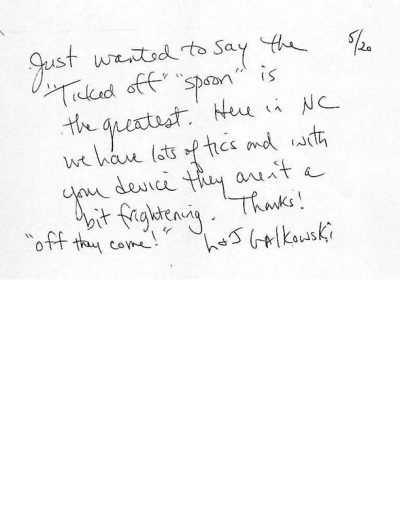 5/20
Just wanted to say the
"Ticked off" "spoon" is
the greatest. Here in NC
we have lots of tics and with
your device they aren't a
bit frightening. Thanks!
"off they come!" L+J Galkowski